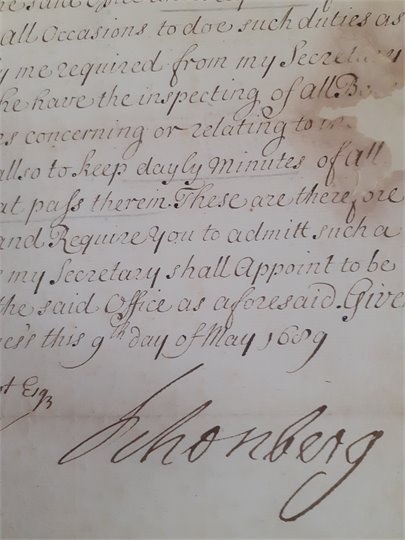 said Office
all Occasions to doe such duties as
me required from my Secretary
he have the inspecting of all
concerning or relating to
allso to keep dayly Minutes of all
at pass therein. These are therefore
and Require You to admitt such a
my Secretary shall Appoint to be
the said Office as aforesaid. Give
this 9th day of May 1689
Esqr
Schonberg